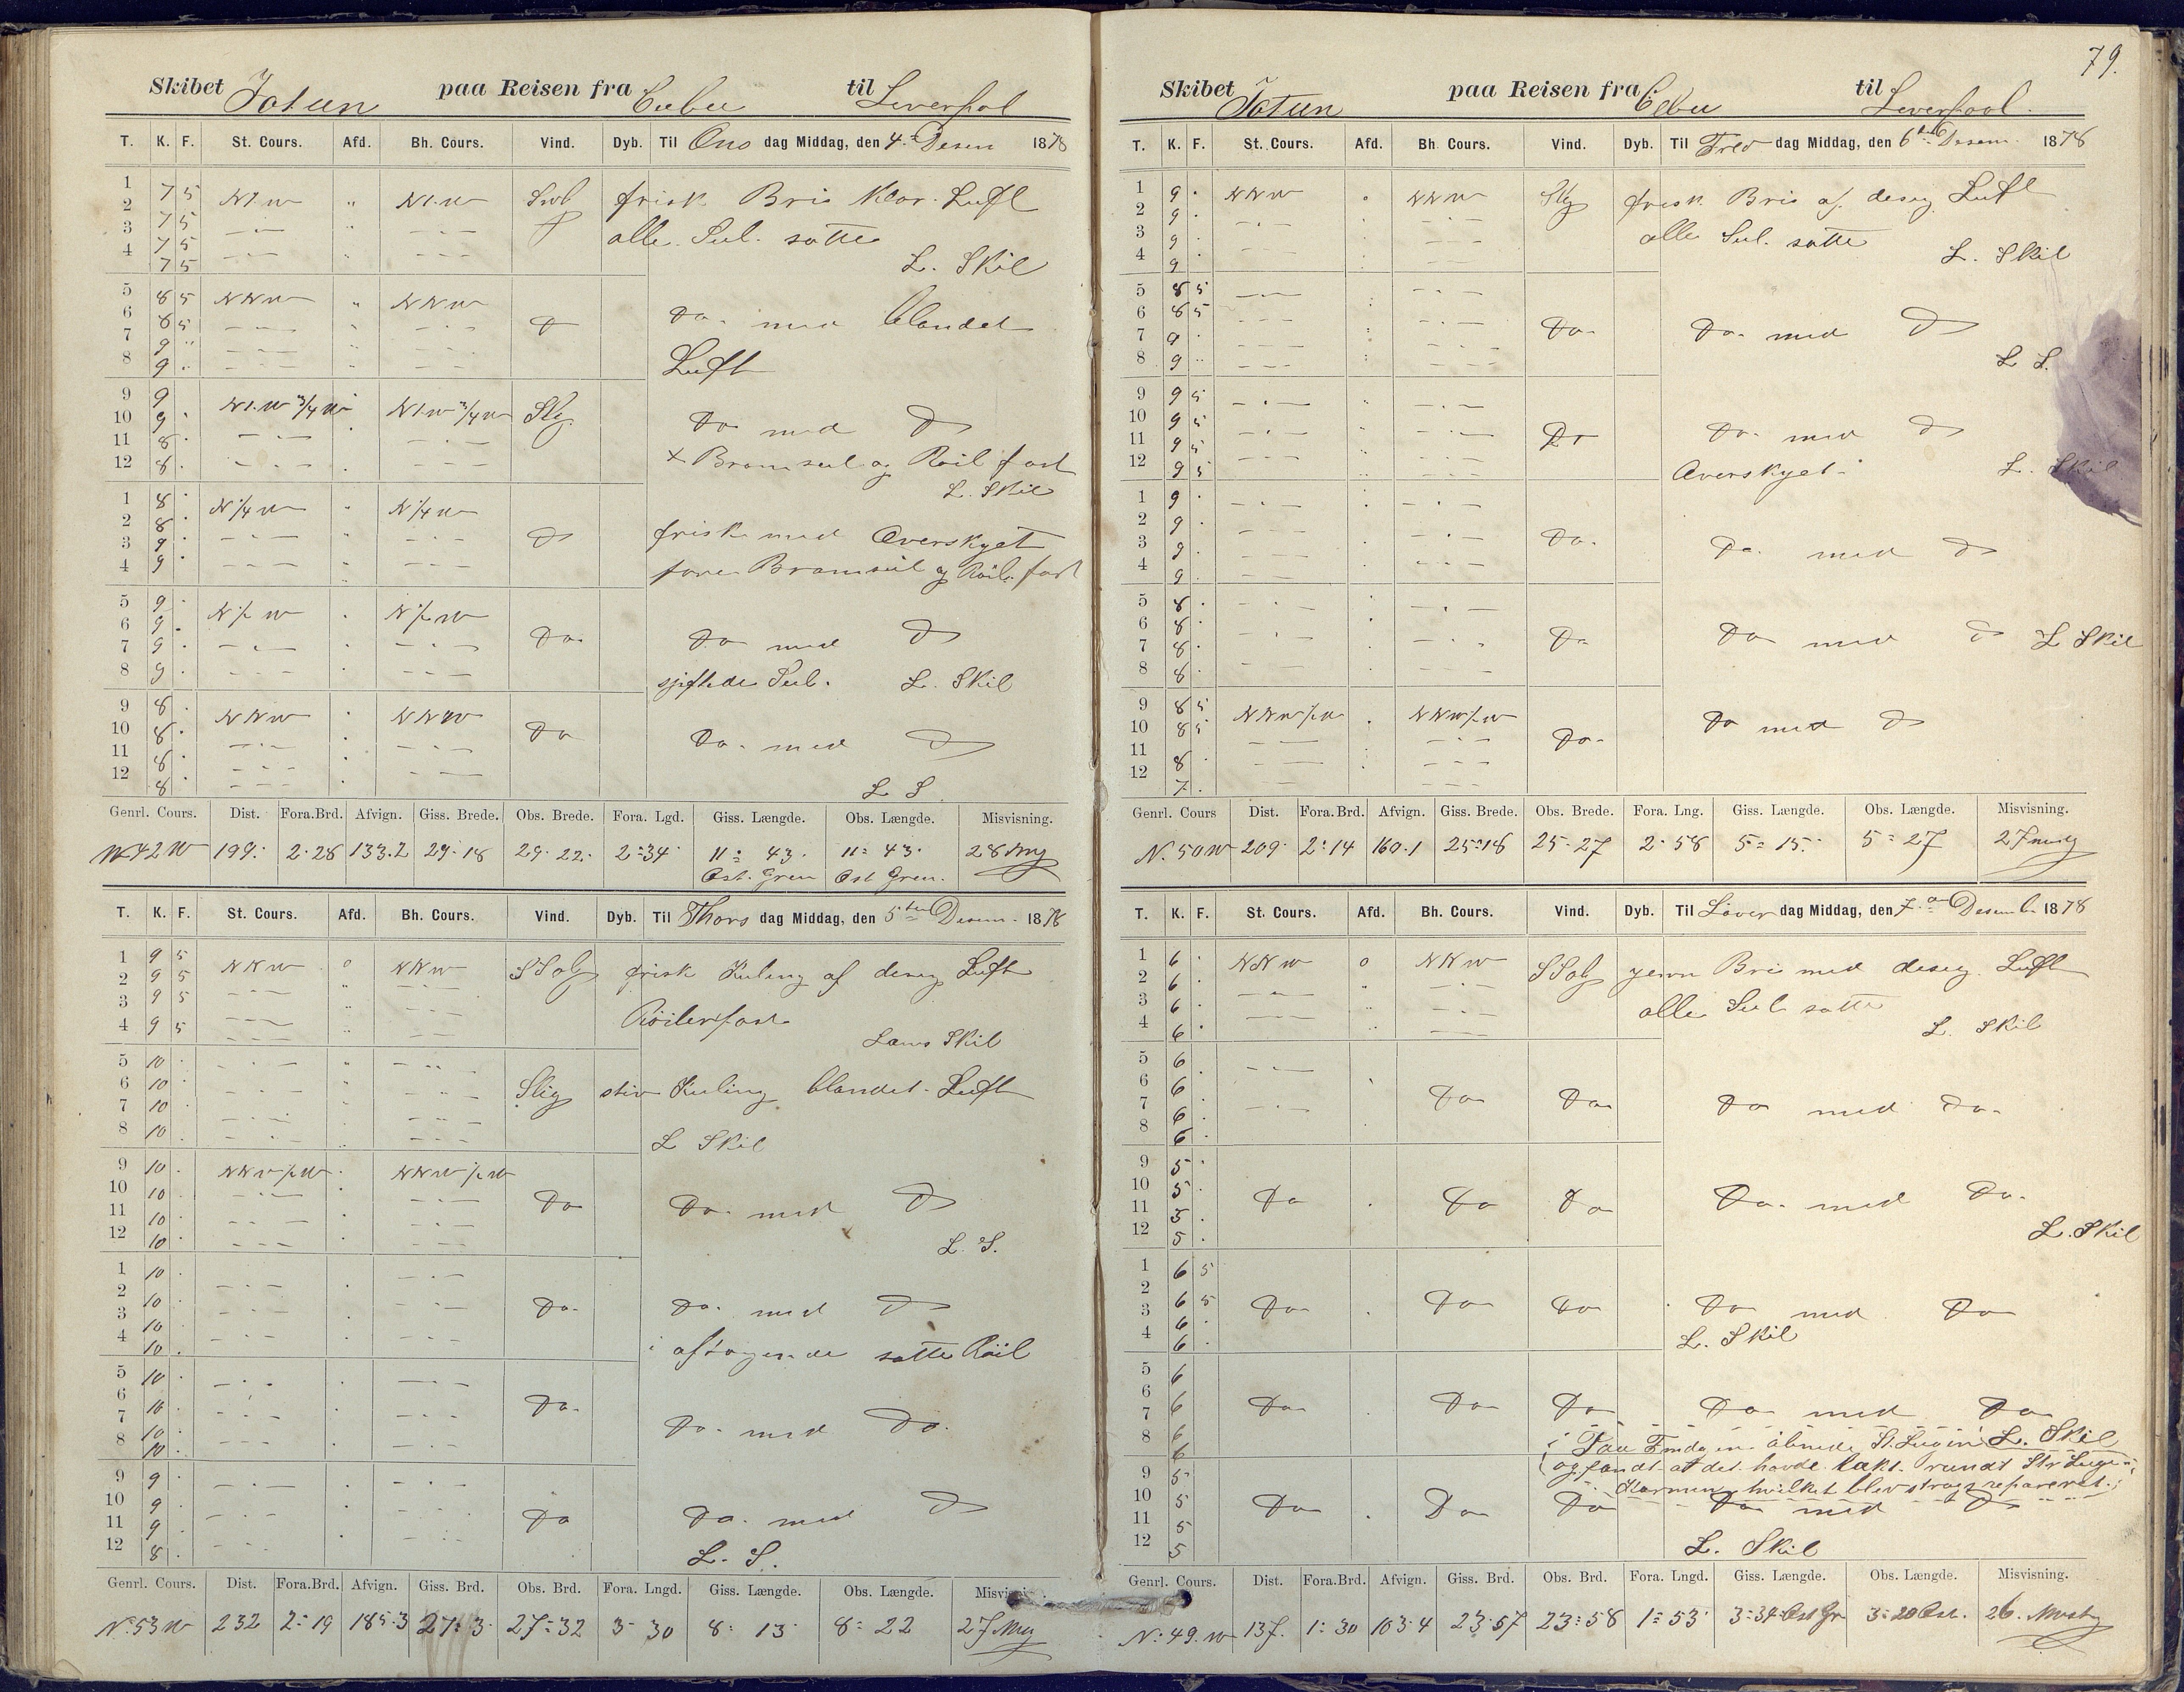 Skibet Jotun paa Reisen fra Cebu til Liverpol
T. K. F. St. Cours. Afd. Bh. Cours. Vind. Dyb. Til Ons dag Middag, den 4. Desem 1878
1 7 5 Sol frisk Bris Klar Luft
2 7 5
3 7 5 alle Seil satte
4 7 5 L. Skil
5 8 5 NNW NNW
6 8 5 Do Do med blandet
7 9
8 9 Luft
9 9
10 9 Do med Do
11 8 Bramseil og Röil fast
12 8 L. Skil
1 8 N 1/4 W N 1/4 W
2 8 Do frisk med Overskyet
3 9
4 9 Bramseil og Röil fast
5 9 N 1/2 W N 1/2 W
6 9 Do Do med Do
7 9
8 9 sjiftede Seil. L. Skil
9 8 NNW NNW
10 8 Do Do med Do
11 8
12 8 L S
Genrl. Cours. Dist. Fora.Brd. Afvign. Giss. Brede. Obs. Brede. Fora. Lgd. Giss. Længde. Obs. Længde. Misvisning.
N 42 W 199. 2.28 133.2 29.18 29.22. 2=34 11= 43. 11= 43. 28
Ost. Gren Ost Gren.
T. K. F. St. Cours. Afd. Bh. Cours. Vind. Dyb. Til Thors dag Middag, den 5te Desem. 1878
1 9 5 NNW 0 NNW frisk Kuling af diseg Luft
2 9 5
3 9 5 Röiler fast
4 9 5 Lams Skil
5 10
6 10 stiv Kuling blandet Luft
7 10
8 10 L Skil
9 10 NNW 1/2 W NNW 1/2 W
10 10 Do Do med Do
11 10
12 10 L. S.
1 10
2 10 Do. Do. med Do
3 10
4 10 aftagende satte Röil
5 10
6 10 Do.
7 10 Do. med Do.
8 10
9 9
10 9 Do Do. med Do
11 9
12 8 L. S.
Genrl. Cours. Dist. Fora.Brd. Afvign. Giss. Brd. Obs. Brd. Fora. Lngd. Giss. Længde. Obs. Længde.
N. 53 W 232 2=19 185.3 27=3. 27=32 3 30 8= 13 8= 22 27
79.
Skibet Jotun paa Reisen fra Cebu til Liverpool.
T. K. F. St. Cours. Afd. Bh. Cours. Vind. Dyb. Til Fre dag Middag, den 6te Desem. 1878
1 9 NNW NNW frisk Bris af diseg Luft
2 9
3 9 alle Seil. satte
4 9 L. Skil
5 8 5
6 8 5 Do Do med Do
7 9
8 9 L S.
9 9 5
10 9 5 Do Do med Do
11 9 5
12 9 5 Overskyet L. Skil
1 9
2 9
3 9 Do. Do. med Do
4 9
5 8
6 8
7 8 Do Do med Do L Skil
8 8
9 8 5 NNW 1/2 W NNW 1/2 W
10 8 5 Do. Do med Do
11 8
12 7
Genrl. Cours Dist. Fora.Brd. Afvign. Giss. Brede. Obs. Brede. Fora. Lng. Giss. Længde. Obs. Længde. Misvisning.
N. 50 W 209. 2=14 160.1 25=18 25=27 2.58 5= 15. 5= 27 27
T. K. F. St. Cours. Afd. Bh. Cours. Vind. Dyb. Til Löver dag Middag, den 7. Desemb. 1878
1 6 NNW 0 NNW jevn Bris med diseg. Luft
2 6
3 6 alle Seil satte
4 6 L. Skil
5 6
6 6
7 6 Do Do Do med Do.
8 6
9 5
10 5 Do Do Do Do. med Do.
11 5
12 5 L. Skil
1 6 5
2 6 5
3 6 Do Do Do Do med Do
4 6 L. Skil
5 6
6 6 Do Do Do Do med Do
7 6
8 6 L. Skil
og fandt at det havde lækt rundt
9 5 Karmen hvilket blev strags repareret.
10 5 Do Do Do Do med Do
11 5
12 5 L. Skil
Genrl. Cours. Dist. Fora.Brd. Afvign. Giss. Brd. Obs. Brd. Fora. Lngd. Giss. Længde. Obs. Længde. Misvisning.
N. 49. W 137. 1=30 103.4 23.57 23=58 1=53 3=34 Ost Gr 3=20 Ost. 26.